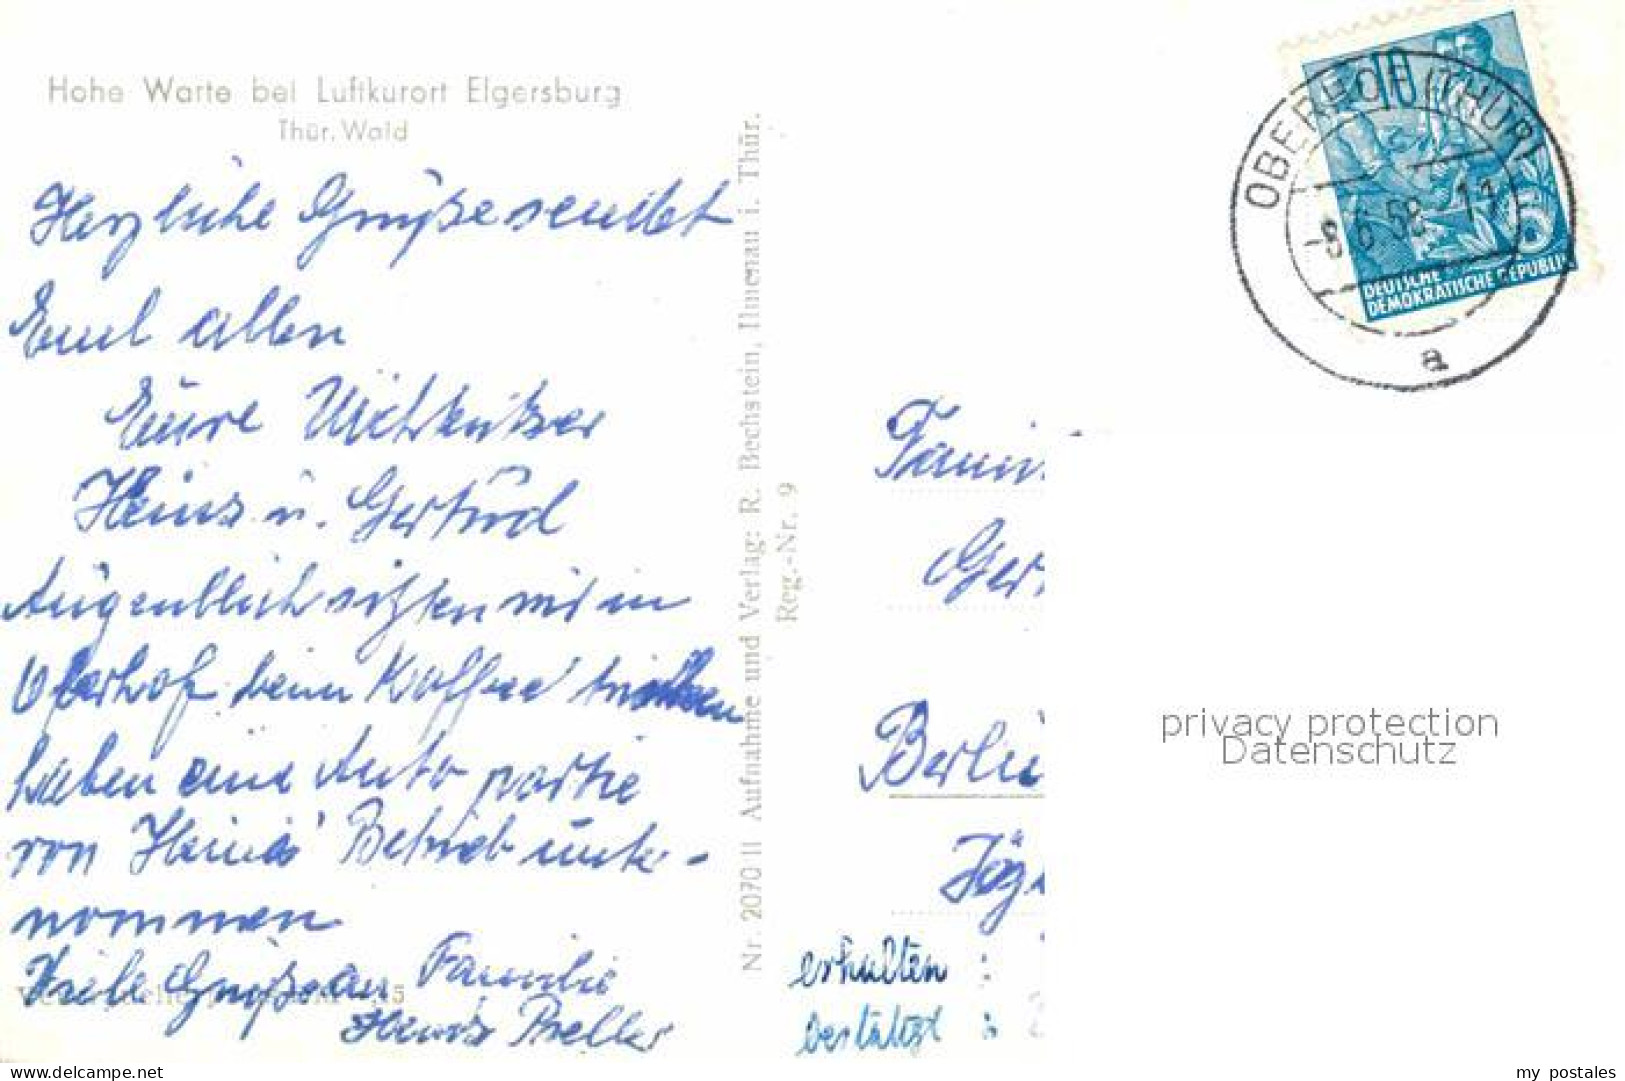 Hohe Warte bei Luftkurort Elgersburg
Thür. Wald
Herzliche Grüße sendet
Euch allen
Eure
Heinz u. Gertrud
Augenblich sitzen wir in
Oberhof beim Kaffee trinken
haben eine Auto partie
von Heinz' Betrieb unter-
nommen
Viele Grüße an Familie
Heinz Preller
Nr. 2070 II Aufnahme und Verlag: R. Bechstein, Ilmenau i. Thür.
Reg.-Nr. 9
10
DEUTSCHE
DEMOKRATISCHE REPUBLIK
5
OBERHOF (THÜR)
-8.6.58-11
a
Fami
Ger
Berli
Jäg
erhalten :
bestätigt :
privacy protection
Datenschutz
delcampe.net
my_postales